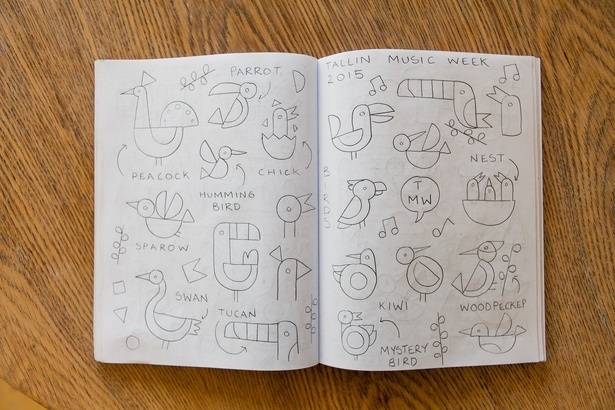 PARROT
PEACOCK
CHICK
HUMMING
BIRD
SPAROW
SWAN
TUCAN
TALLIN MUSIC WEEK
2015
BIRDS
NEST
T
MW
KIWI
WOODPECKER
MYSTERY
BIRD